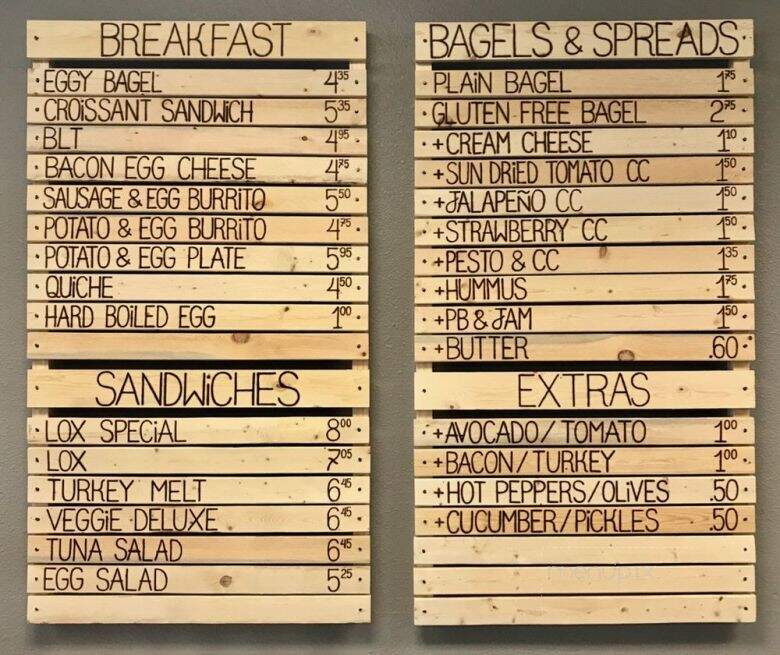 BREAKFAST
EGGY BAGEL 4.35
CROiSSANT SANDWiCH 5.35
BLT 4.95
BACON EGG CHEESE 4.75
SAUSAGE & EGG BURRiTO 5.50
POTATO & EGG BURRiTO 4.75
POTATO & EGG PLATE 5.95
QUiCHE 4.50
HARD BOiLED EGG 1.00
SANDWiCHES
LOX SPECiAL 8.00
LOX 7.05
TURKEY MELT 6.45
VEGGiE DELUXE 6.45
TUNA SALAD 6.45
EGG SALAD 5.25
BAGELS & SPREADS
PLAiN BAGEL 1.75
GLUTEN FREE BAGEL 2.75
+CREAM CHEESE 1.10
+SUN DRiED TOMATO CC 1.50
+JALAPEÑO CC 1.50
+STRAWBERRY CC 1.50
+PESTO & CC 1.35
+HUMMUS 1.75
+PB & JAM 1.50
+BUTTER .60
EXTRAS
+AVOCADO/TOMATO 1.00
+BACON/TURKEY 1.00
+HOT PEPPERS/OLiVES .50
+CUCUMBER/PiCKLES .50